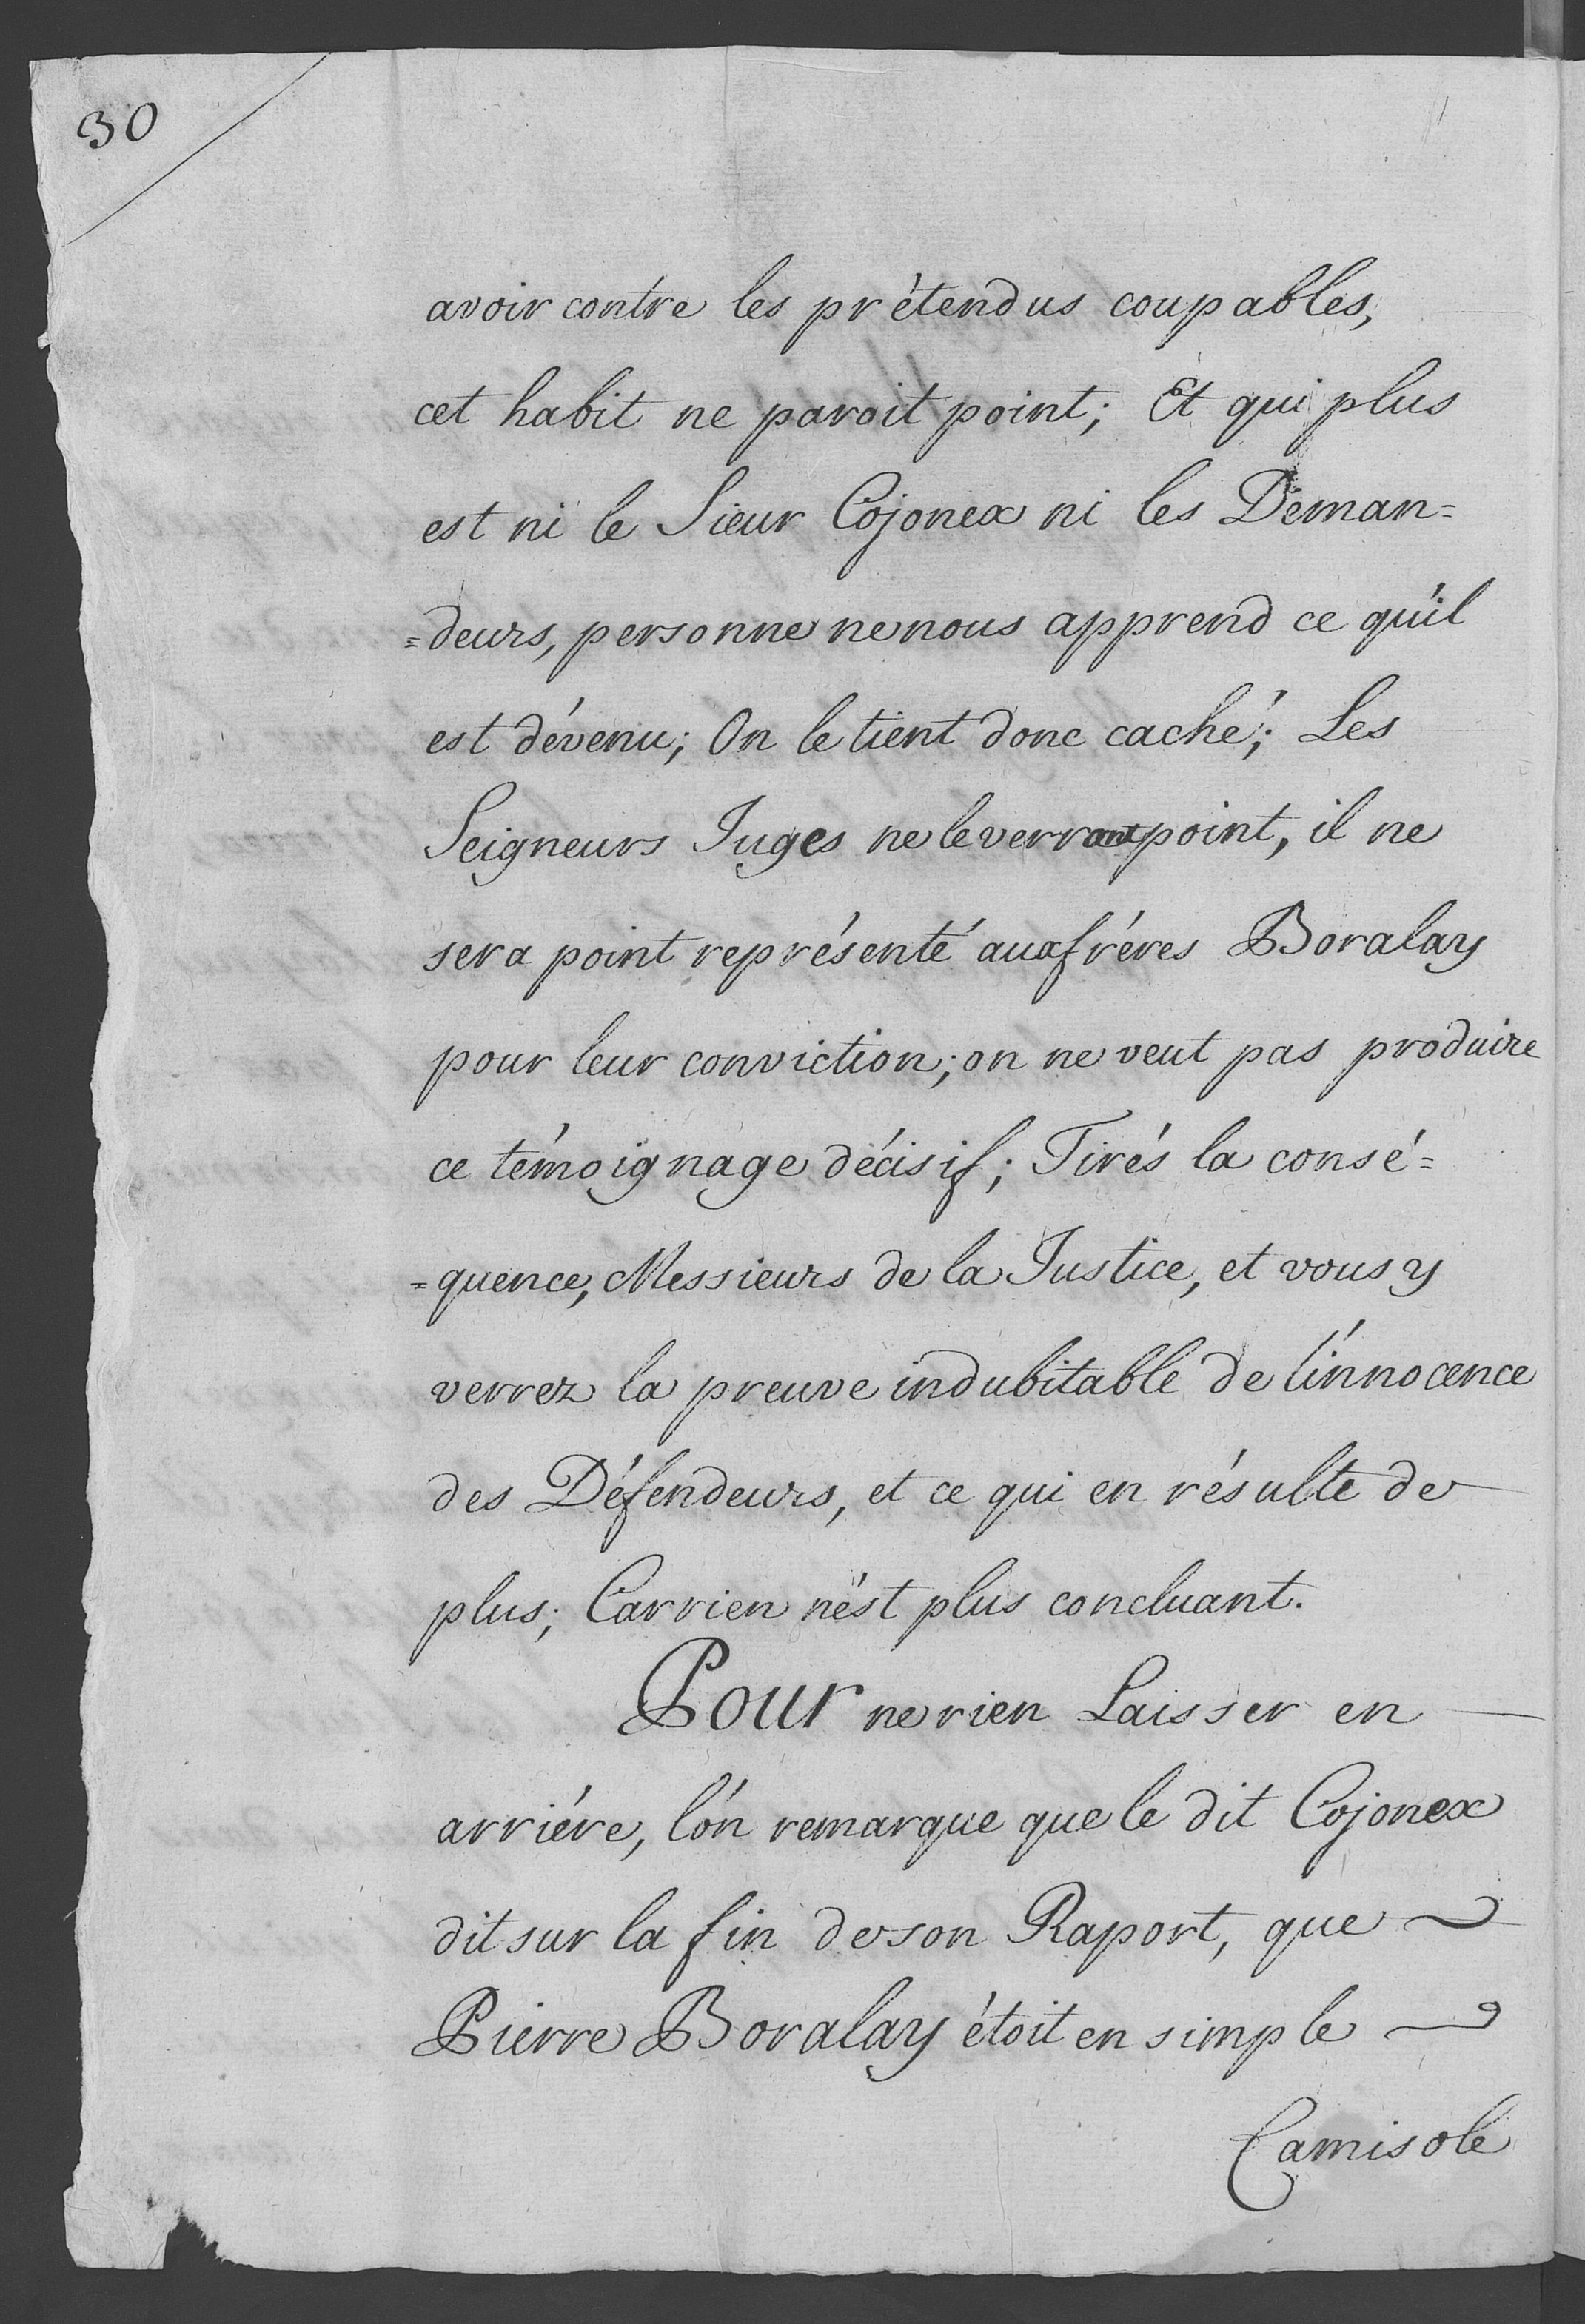 30
avoir contre les prétendus coupables,
cet habit ne paroit point; Et qui plus
est ni le Sieur Cojonex ni les Deman=
=deurs, personne ne nous apprend ce qu'il
est dévenu; On le tient donc caché; Les
Seigneurs Juges ne le verront point, il ne
sera point représenté aux fréres Boralay
pour leur conviction; on ne veut pas produire
ce témoignage décisif; Tirés la consé=
=quence, Messieurs de la Justice, et vous y
verrez la preuve indubitable de l'innocence
des Défendeurs, et ce qui en résulte de
plus; Car rien n'est plus concluant.
Pour ne rien Laisser en
arriére, l'on remarque que le dit Cojonex
dit sur la fin de son Raport, que
Pierre Boralay étoit en simple
Camisole